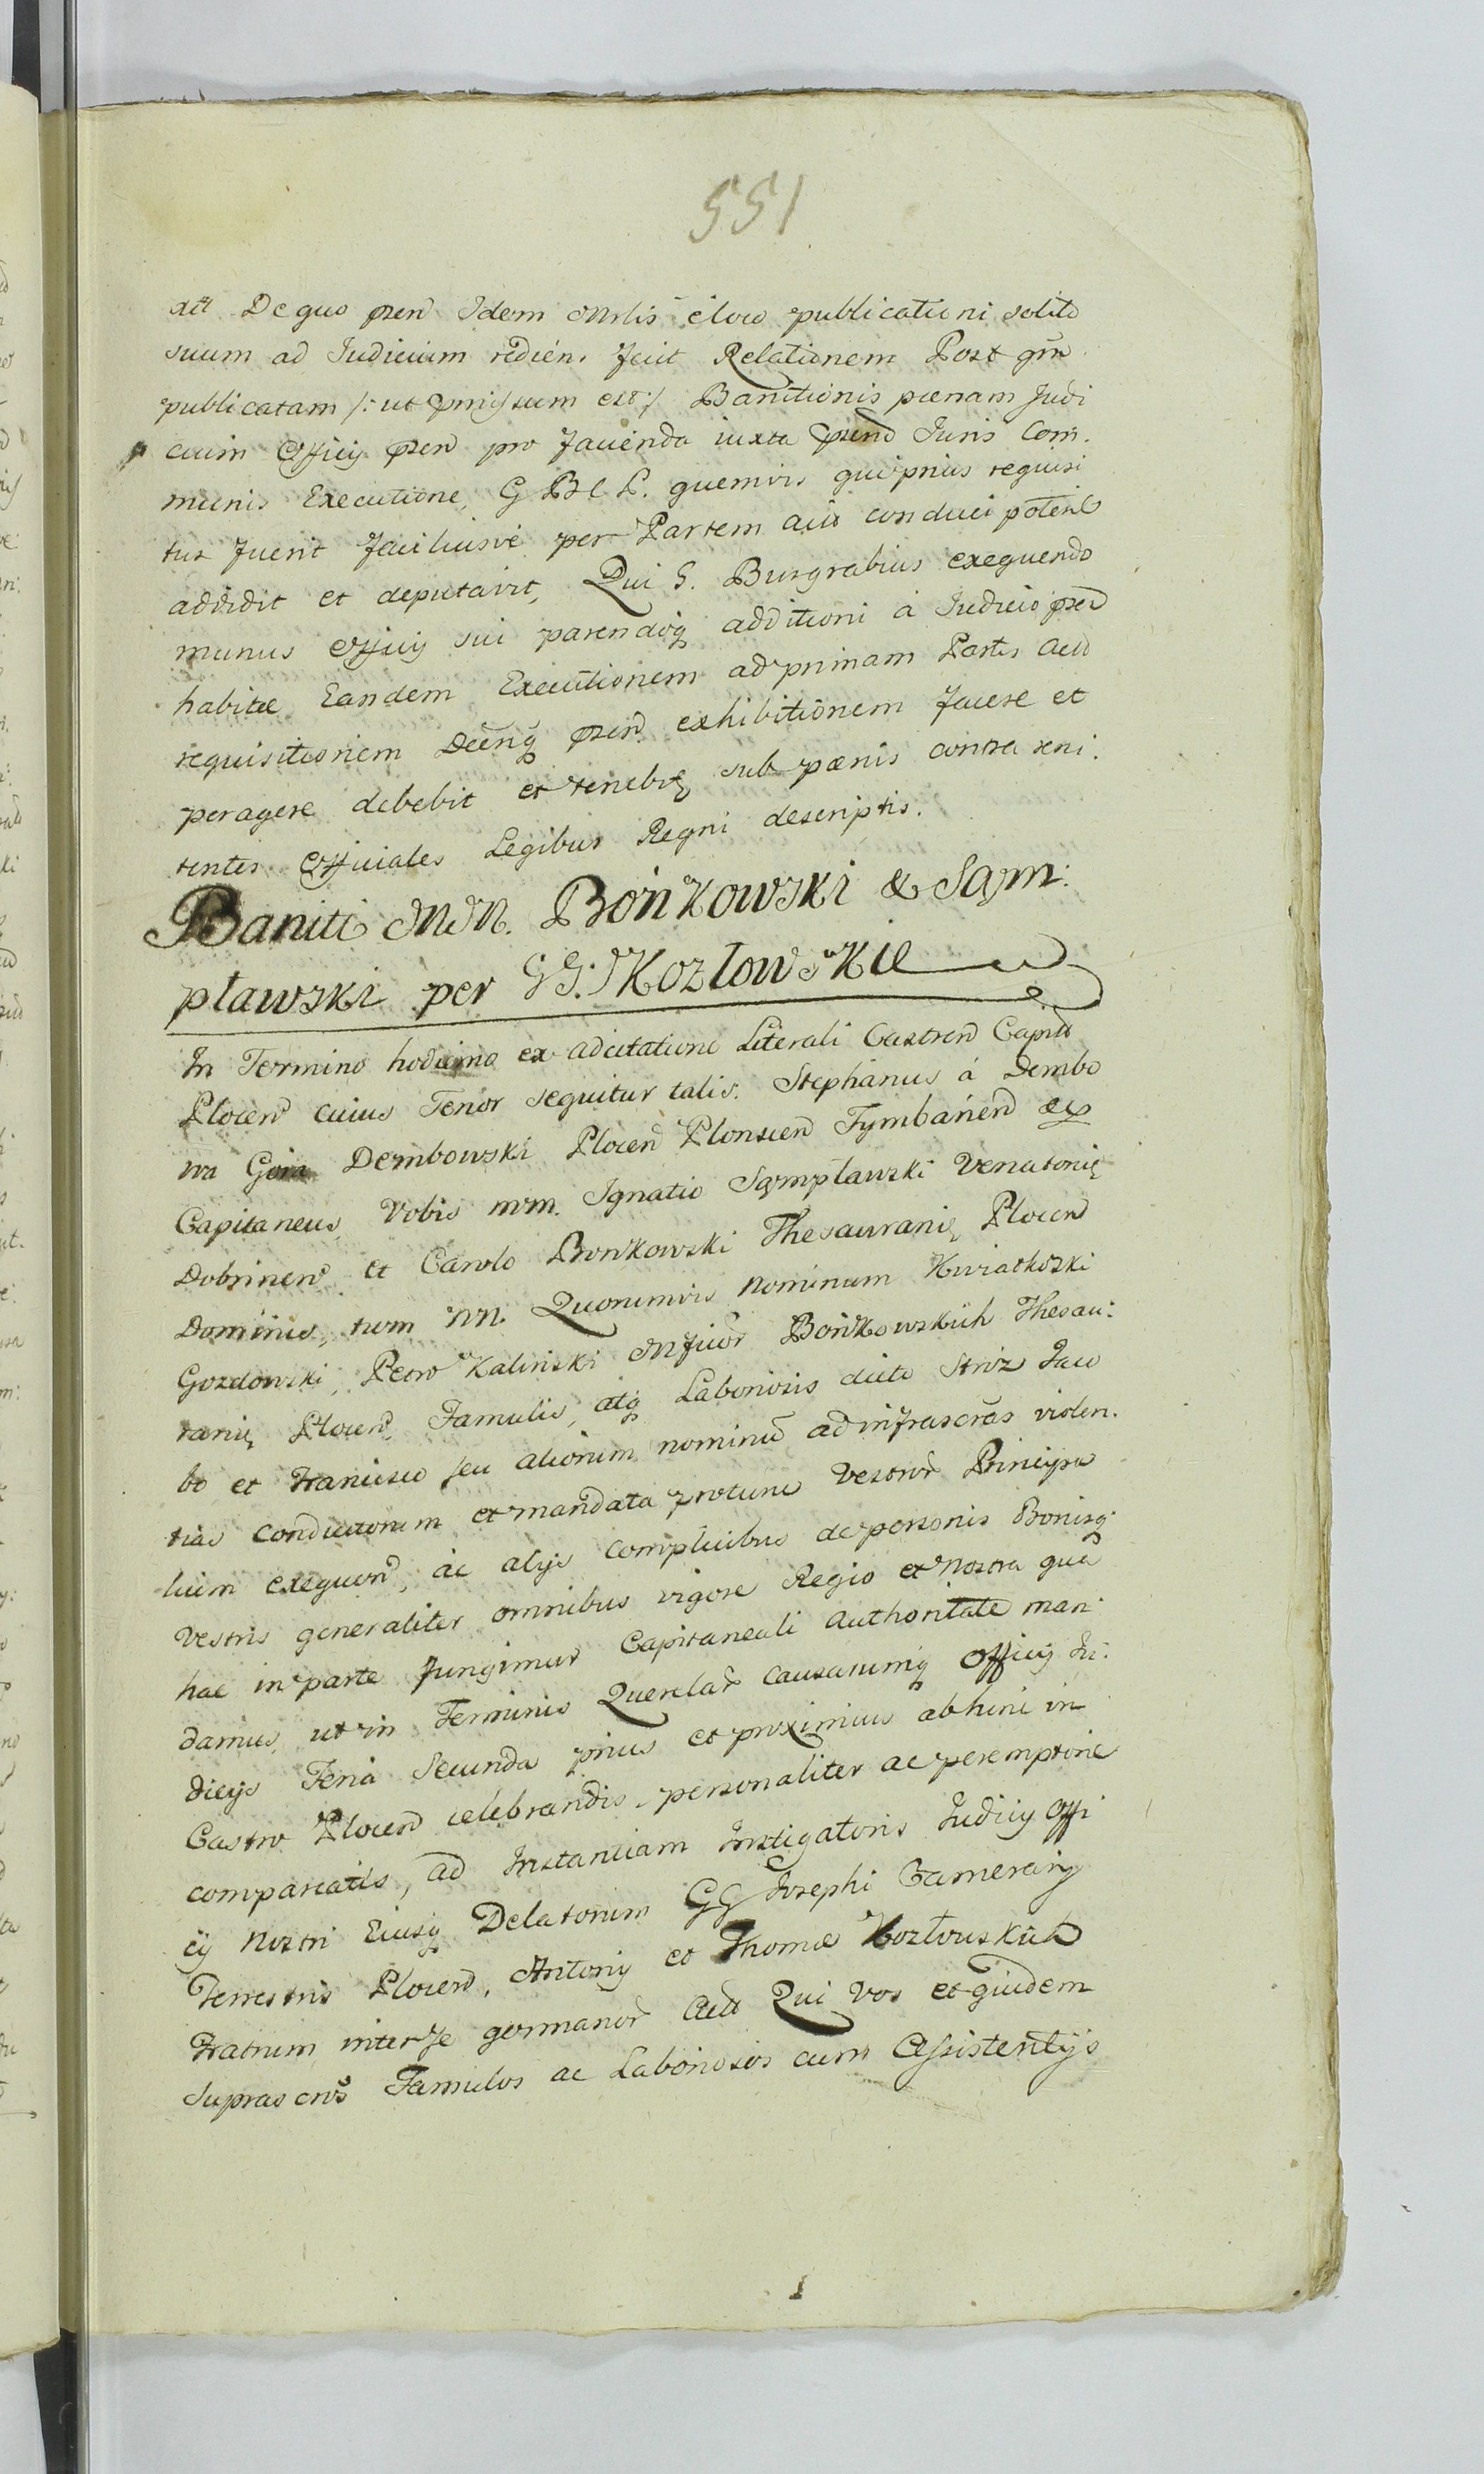 551
xit De quo pŕend Idem Mrlis è loco publicationi solito
suum ad Iudicium redien. fecit Relationem Post qm̃
publicatam /: ut pmissum est :/ Banitionis pœnam Judi
cium Officij pŕend pro facienda iuxta pŕend Iuris Com.
munis Executione, G B C P. quemvis qui prius requisi
tus fuerit faciliusve per Partem act conduci poterit
addidit et deputavit, Qui G. Burgrabius exequendo
munus Officij sui parendoq additioni á Iudicio pŕend
habitæ Eandem Executionem ad primam Partis act
requisitionem Decŕiq pŕend exhibitionem facere et
peragere debebit et tenebitr sub pœnis contra reni.
tentes Officiales Legibus Regni descriptis.
Baniti MM. Bońkowski & Sąm:
pławski per GG. Kozłowskie
In Termino hodierno ex adcitatione Literali Castren Capitt
Plocen cuius Tenor sequitur talis. Stephanus á Dembo
wa Gora Dembowski Plocen Plonscen Tymbarien etc
Capitaneus, Vobis mm. Ignatio Sąmpławski Venatorię
Dobrinen et Carolo Bonkowski Thesauranię Plocen
Dominis, tum NN. Quorumvis Nominum Kwiatkoski
Gozdowski, Petro Kaliński Mficor Bońkowskich Thesau:
ranię Plocen, Famulis, atq Laboriosis dicto Stróz Iaco
bo et Francisco seu aliorum nominũ ad infrascrãs violen.
tias conductorum et mandata protunc Vestror Principa
lium exequen, ac alijs complicibus de personis Bonisq
Vestris generaliter omnibus vigore Regio et Nostra qua
hac in parte fungimur Capitaneali Authoritate man:
damus, ut in Terminis Querelar Causarumq Officij Iu:
dicijs Feria Secunda prius et proximius abhinc in
Castro Plocen celebrandis, personaliter ac peremptorie
compareatis, ad Instantiam Instigatoris Iudicij Offi
cij Nostri Eiusq Delatorum GG Josephi Camerarij
Terrestris Plocen, Antonij et Thomæ Kozłowskich
Fratrum inter se germanor Act Qui Vos et quidem
Suprascros Famulos ac Laboriosos cum Assistentijs